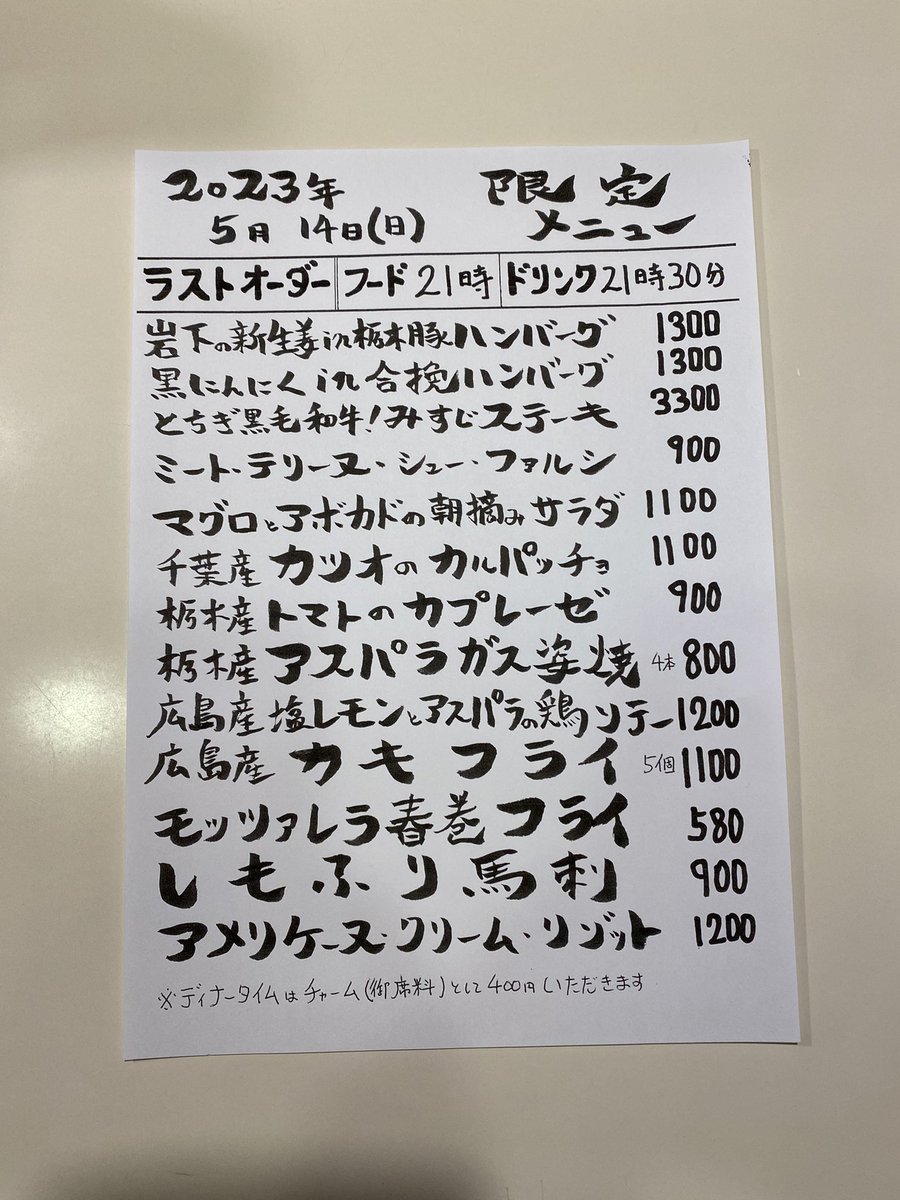 2023年 限定
5月 14日(日) メニュー
ラストオーダー フード21時 ドリンク21時30分
岩下の新生姜in栃木豚ハンバーグ 1300
黒にんにくin合挽ハンバーグ 1300
とちぎ黒毛和牛!みすじステーキ 3300
ミート・テリーヌ・シュー・ファルシ 900
マグロとアボカドの朝摘みサラダ 1100
千葉産 カツオのカルパッチョ 1100
栃木産 トマトのカプレーゼ 900
栃木産 アスパラガス姿焼 4本 800
広島産 塩レモンとアスパラの鶏ソテー 1200
広島産 カキフライ 5個 1100
モッツァレラ春巻フライ 580
しもふり馬刺 900
アメリケーヌ・クリーム・リゾット 1200
※ディナータイムはチャーム(御席料)として400円いただきます